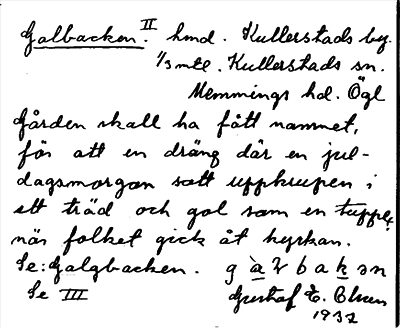 Galbacken. II hmd. Kullerstads by.
1/3 mtl. Kullerstads sn.
Memmings hd. Ögl
Gården skall ha fått namnet,
för att en dräng där en jul-
dagsmorgon satt uppkrupen i
ett träd och gol som en tupp
när folket gick åt kyrkan.
Se: Galgbacken.
Se III Gustaf E.
1937